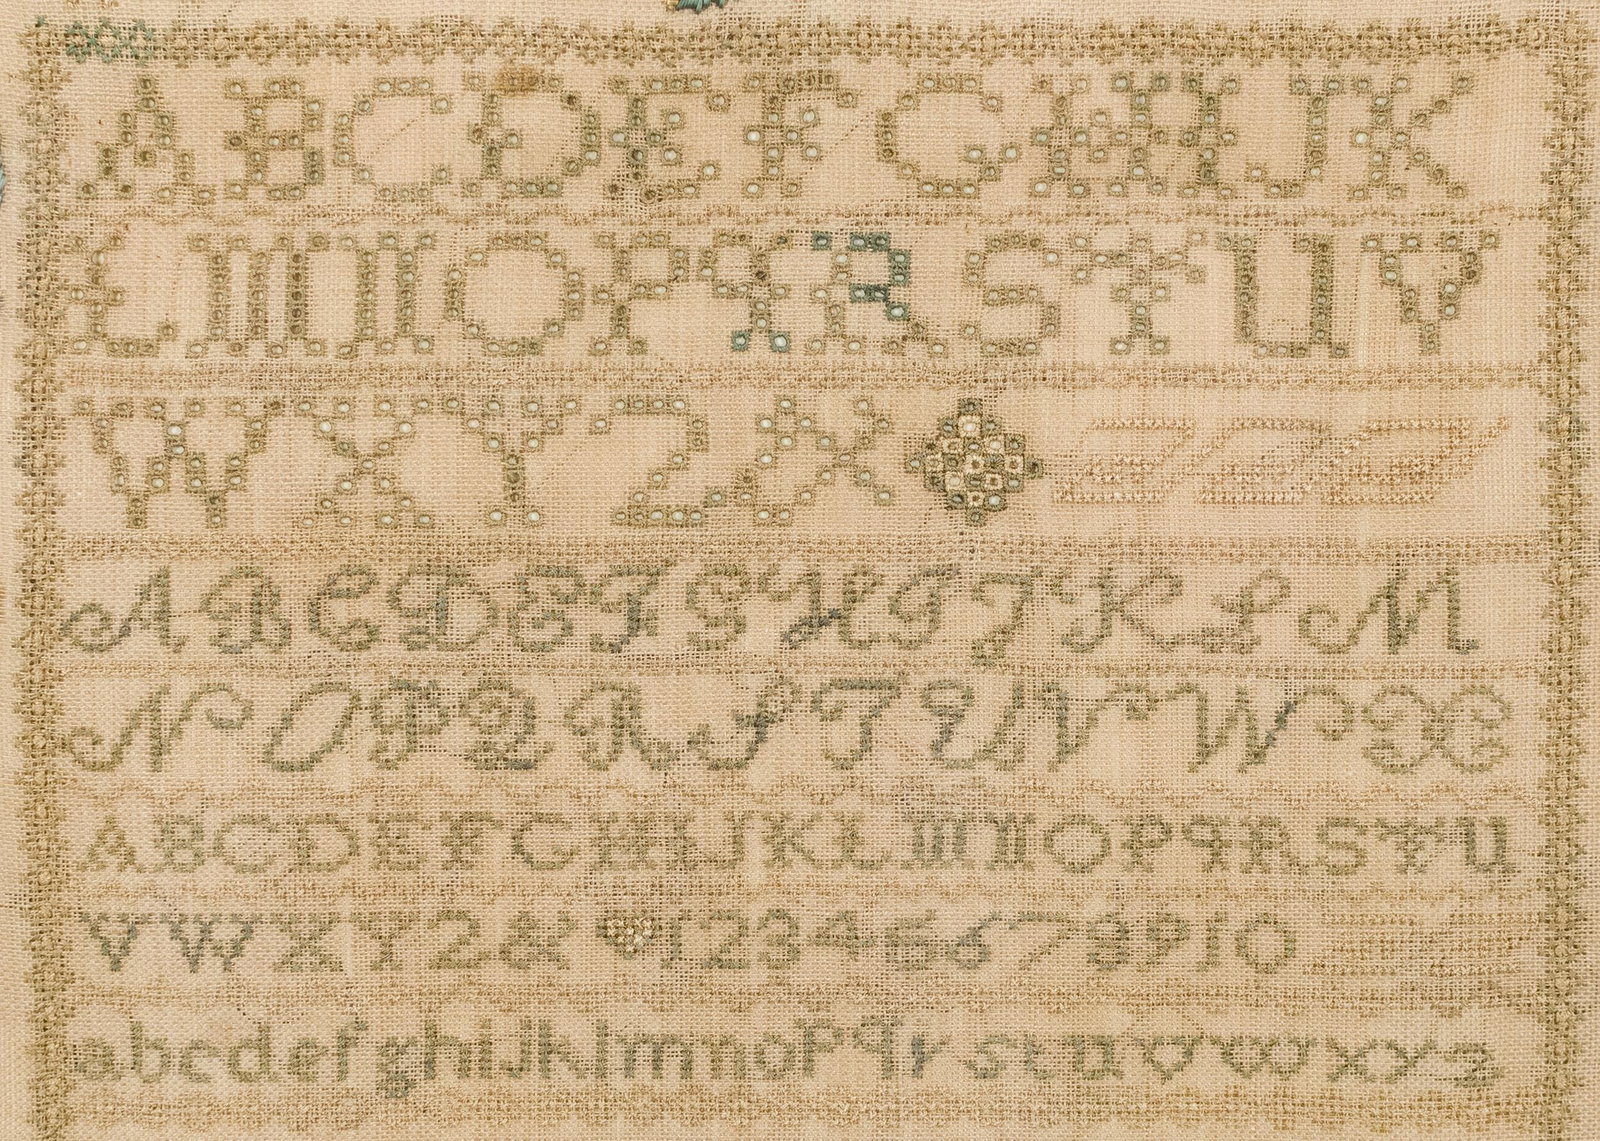 A B C D E F G H I J K
L M N O P Q R S T U V
W X Y Z &
A B C D E F G H I J K L M
N O P Q R S T U V W X
A B C D E F G H I J K L M N O P Q R S T U
V W X Y Z & 1 2 3 4 5 6 7 8 9 10
a b c d e f g h i j k l m n o p q r s t u v w x y z